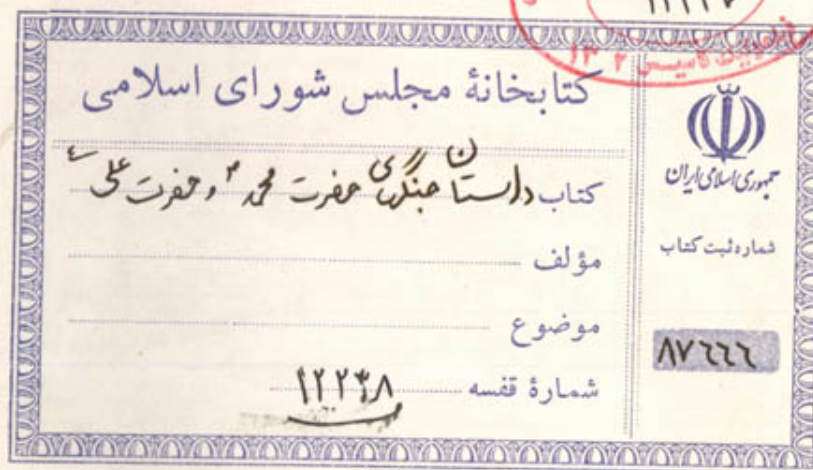 کتابخانهٔ مجلس شورای اسلامی
کتاب داستان جنگهای حضرت محمد ص و حضرت علی ع
مؤلف
موضوع
شمارهٔ قفسه ۱۲۲۳۸
جمهوری اسلامی ایران
شماره ثبت کتاب
۸۷۶۶۶
۱۳۰۲